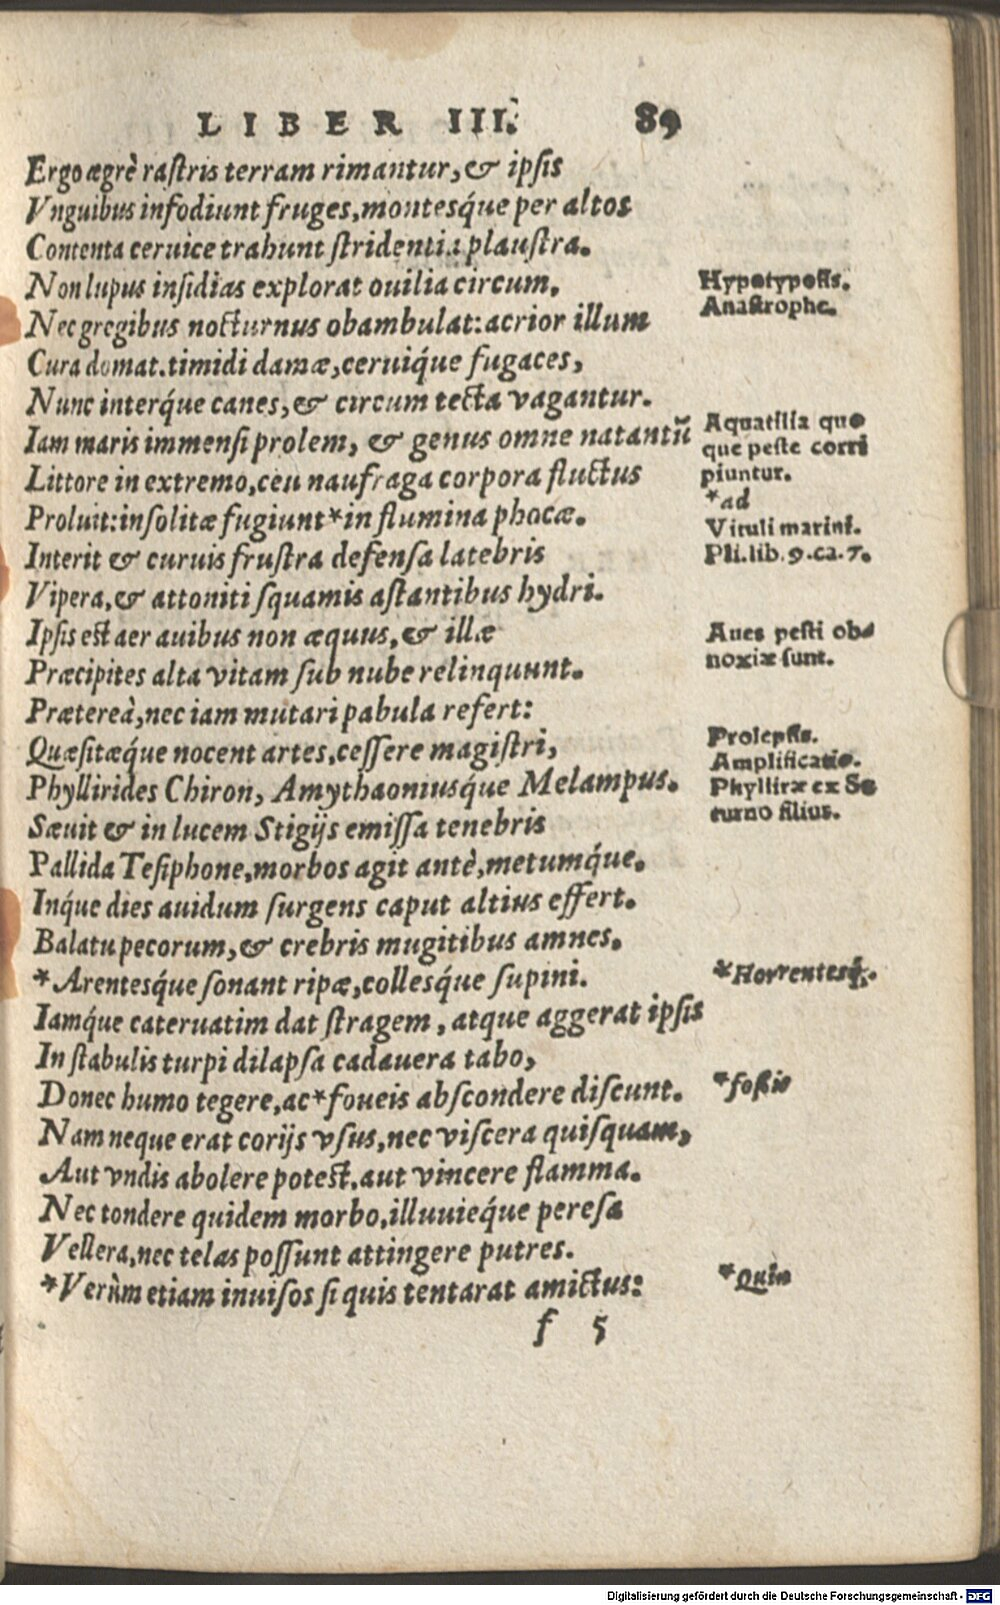 LIBER III. 89
Ergo ægrè rastris terram rimantur, & ipsis
Vnguibus infodiunt fruges, montesq́ue per altos
Contenta ceruice trahunt stridentia plaustra.
Non lupus insidias explorat ouilia circum,
Hypotyposis.
Nec gregibus nocturnus obambulat: acrior illum
Anastrophe.
Cura domat. timidi damæ, ceruiq́ue fugaces,
Nunc interq́ue canes, & circum tecta vagantur.
Iam maris immensi prolem, & genus omne natantũ
Aquatilia quo
que peste corri
piuntur.
Littore in extremo, ceu naufraga corpora fluctus
Proluit: insolitæ fugiunt *in flumina phocæ.
*ad
Vituli marini.
Pli. lib. 9. ca. 7.
Interit & curuis frustra defensa latebris
Vipera, & attoniti squamis astantibus hydri.
Ipsis est aer auibus non æquus, & illæ
Aues pesti ob-
noxiæ sunt.
Præcipites alta vitam sub nube relinquunt.
Prætereà, nec iam mutari pabula refert:
Quæsitæq́ue nocent artes, cessere magistri,
Prolepsis.
Amplificatio.
Phyllirides Chiron, Amythaoniusq́ue Melampus.
Phylliræ ex Sa
turno filius.
Sæuit & in lucem Stigijs emissa tenebris
Pallida Tesiphone, morbos agit antè, metumq́ue.
Inq́ue dies auidum surgens caput altius effert.
Balatu pecorum, & crebris mugitibus amnes.
*Arentesq́ue sonant ripæ, collesq́ue supini.
*Horrentesq́;.
Iamq́ue cateruatim dat stragem, atque aggerat ipsis
In stabulis turpi dilapsa cadauera tabo,
Donec humo tegere, ac *foueis abscondere discunt.
*fossis
Nam neque erat corijs vsus, nec viscera quisquam,
Aut vndis abolere potest, aut vincere flamma.
Nec tondere quidem morbo, illuuieq́ue peresa
Vellera, nec telas possunt attingere putres.
*Verùm etiam inuisos si quis tentarat amictus:
*Quin
f 5
Digitalisierung gefördert durch die Deutsche Forschungsgemeinschaft - DFG